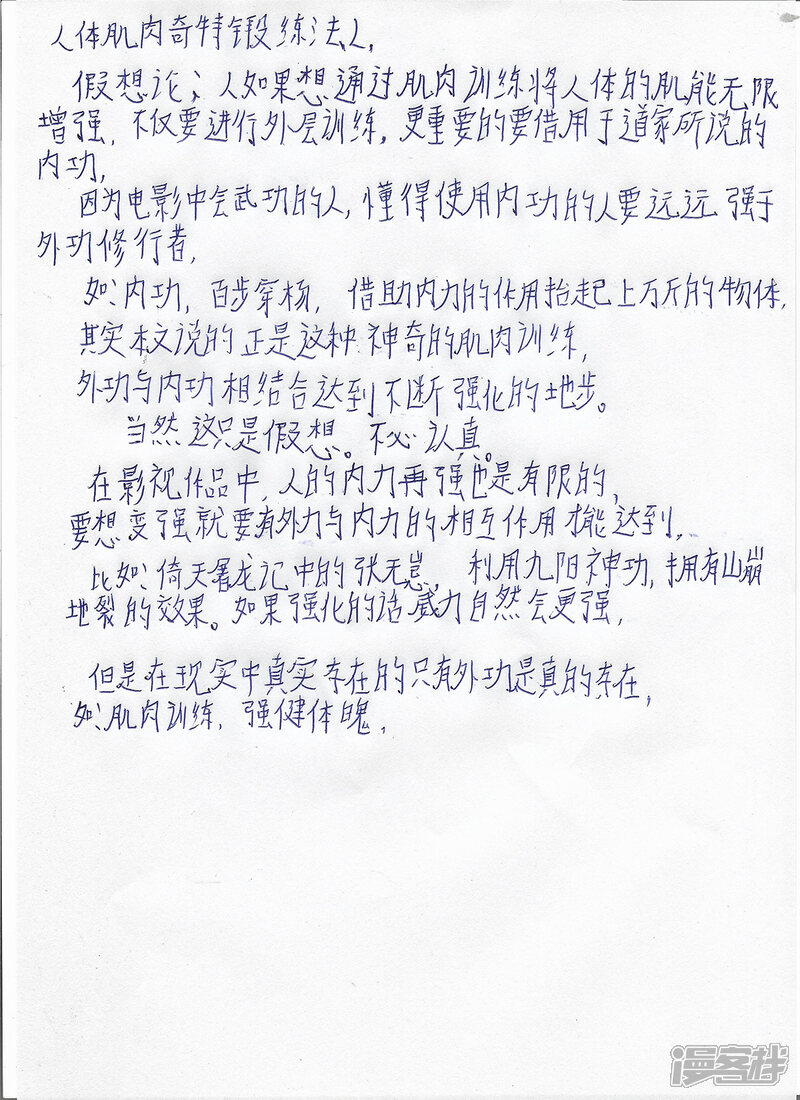 人体肌肉奇特锻练法人,
假想论; 人如果想通过肌肉训练将人体的肌能无限
增强, 不仅要进行外层训练, 更重要的要借用于道家所说的
内功,
因为电影中会武功的人, 懂得使用内功的人要远远强于
外功修行者,
如: 内功, 百步穿杨, 借助内力的作用抬起上万斤的物体,
其实本文说的正是这种神奇的肌肉训练,
外功与内功相结合达到不断强化的地步。
当然这只是假想。不必认真。
在影视作品中, 人的内力再强也是有限的,
要想变强就要有外力与内力的相互作用才能达到,
比如: 倚天屠龙记中的张无忌, 利用九阳神功, 拥有山崩
地裂的效果。如果强化的话威力自然会更强,
但是在现实中真实存在的只有外功是真的存在,
如: 肌肉训练, 强健体魄,
漫客栈